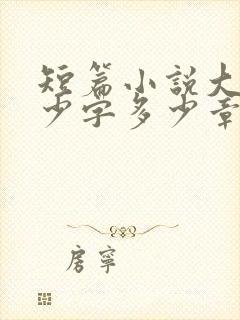 短篇小說大
少字多少章
房寧